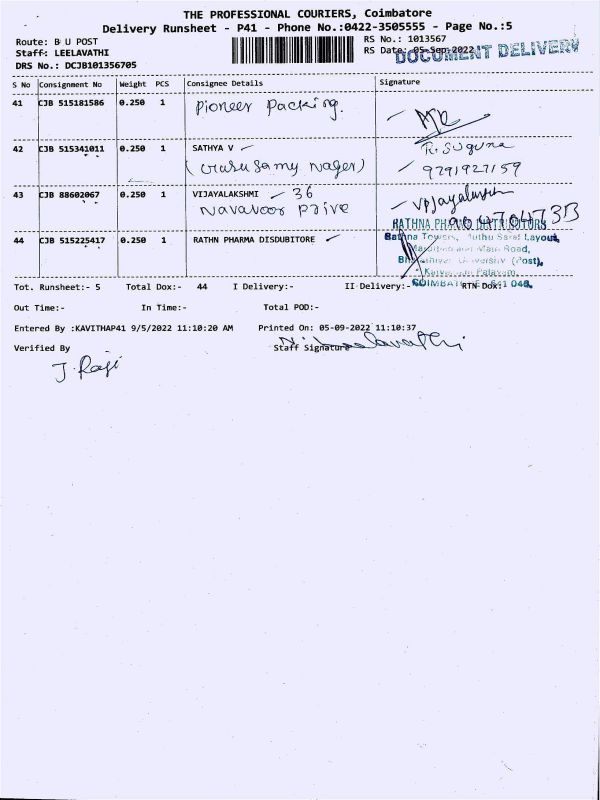 THE PROFESSIONAL COURIERS, Coimbatore
Delivery Runsheet - P41 - Phone No.:0422-3505555 - Page No.:5
Route: B U POST
RS No.: 1013567
Staff: LEELAVATHI
RS Date: 05-Sep-2022
DOCUMENT DELIVERY
DRS No.: DCJB101356705
S No Consignment No Weight PCS Consignee Details Signature
41 CJB 515181586 0.250 1 Pioneer Packing.
42 CJB 515341011 0.250 1 SATHYA V
R. Suguna
9791927159
43 CJB 88602067 0.250 1 VIJAYALAKSHMI - 36
Navavoor
RATHNA PHARMA DISTRIBUTORS
44 CJB 515225417 0.250 1 RATHN PHARMA DISDUBITORE
Rathna Towers, Muthu Layout,
Main Road,
University (Post),
Tot. Runsheet:- 5 Total Dox:- 44 I Delivery:- II Delivery:- RTN Dox:
COIMBATORE 641 046.
Out Time:- In Time:- Total POD:-
Entered By :KAVITHAP41 9/5/2022 11:10:20 AM Printed On: 05-09-2022 11:10:37
Verified By Staff Signature
J. Raji